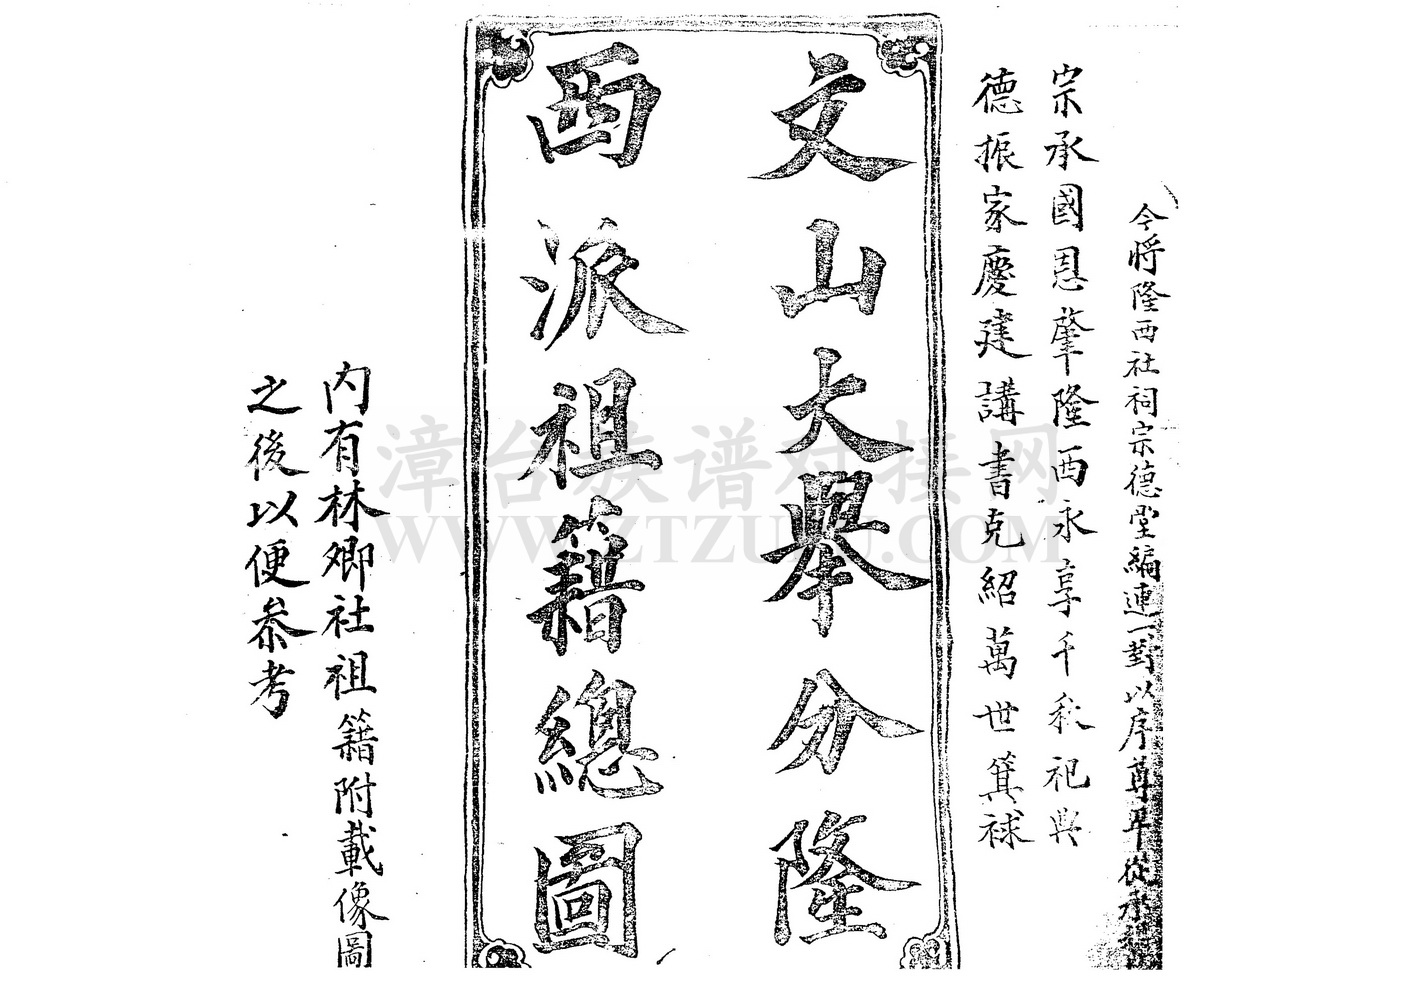 今將隆西社祠宗德堂編連一對以序尊卑從承
宗承國恩肇隆西永享千秋祀典
德振家慶建講書克紹萬世箕裘
文山大舉分隆
西派祖籍總圖
內有林鄉社祖籍附載像圖
之後以便參考
漳台族谱对接网
WWW.ZTZUPU.COM